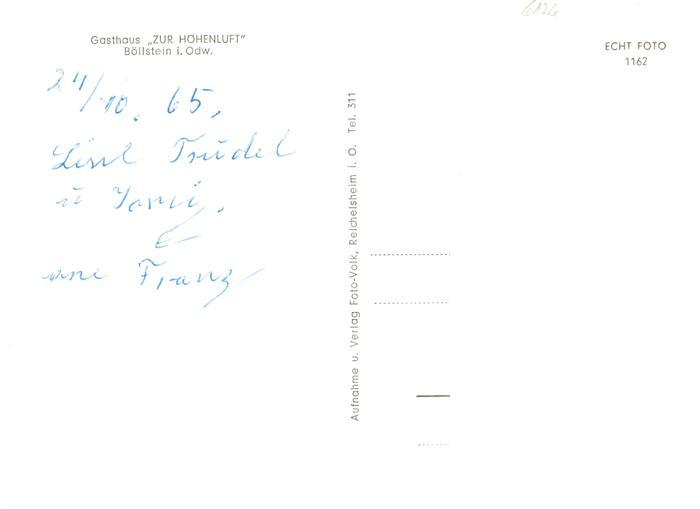 Gasthaus „ZUR HÖHENLUFT"
Böllstein i. Odw.
24/10. 65.
Trudel
u
Franz
Aufnahme u. Verlag Foto-Volk, Reichelsheim i. O. Tel. 311
ECHT FOTO
1162